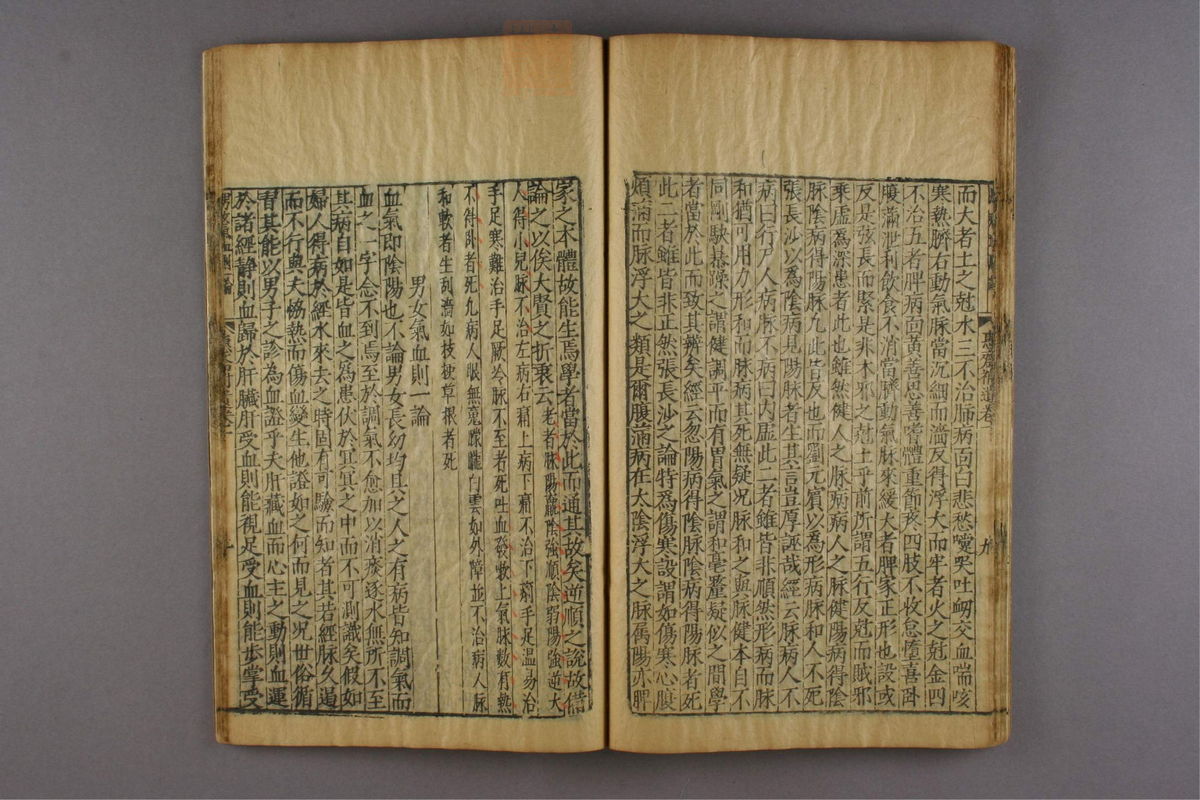 而大者土之尅水三不治肺病面白悲愁嚏哭吐衂交血喘咳
寒熱臍右動氣脉當沉細而濇反得浮大而牢者火之尅金四
不治五者脾病面黃善思善嗜體重節疼四肢不收怠憜喜卧
腹滿泄利飲食不消當臍動氣脉來緩大者脾家正形也設或
反是弦長而緊是非木邪之尅土乎前所謂五行反尅而賦邪
乗虛為深患者此也雖然健人之脉病病人之脉健陽病得陰
脉陰病得陽脉九此皆反也而劉元賔以為形病脉和人不死
張長沙以為陰病見陽脉者生其言豈厚誣哉經云脉病人不
病曰行尸人病脉不病曰内虛此二者雖皆非順然形病而脉
和猶可用力形和而脉病其死無疑况脉和之與脉健本自不
同剛駃暴躁之謂健調平而有胃氣之謂和毫釐疑似之間學
者當於此而致其辨矣經云忽陽病得陰脉陰病得陽脉者死
此二者雖皆非正然張長沙之論特為傷寒設謂如傷寒心腹
煩滿而脉浮大之類是爾腹滿病在太陰浮大之脉屬陽亦脾
家之本體故能生焉學者當於此而通其故矣逆順之說故備
論之以俟大賢之折衷云老者脉陽羸陰強順陰弱陽強逆大
人得小兒脉不治左病右痛上病下痛不治下痢手足温易治
手足寒難治手足厥冷脉不至者死吐血發欬上氣脉數有熱
不得卧者死九病人眼無寃矇矓白雲如外障並不治病人脉
和軟者生乱濇如枝梗草根者死
男女氣血則一論
血氣即陰陽也不論男女長幼均具之人之有病皆知調氣而
血之一字念不到焉至於調氣不愈加以消痰逐水無所不至
其病自如是皆血之為患伏於冥冥之中而不可測識矣假如
婦人得病於經水來去之時固有可驗而知者其若經脉久遏
而不行與夫恊熱而傷血變生他證如之何而見之况世俗循
習其能以男子之診為血證乎夫肝藏血而心主之動則血運
於諸經静則血歸於肝臟肝受血則能視足受血則能步掌受